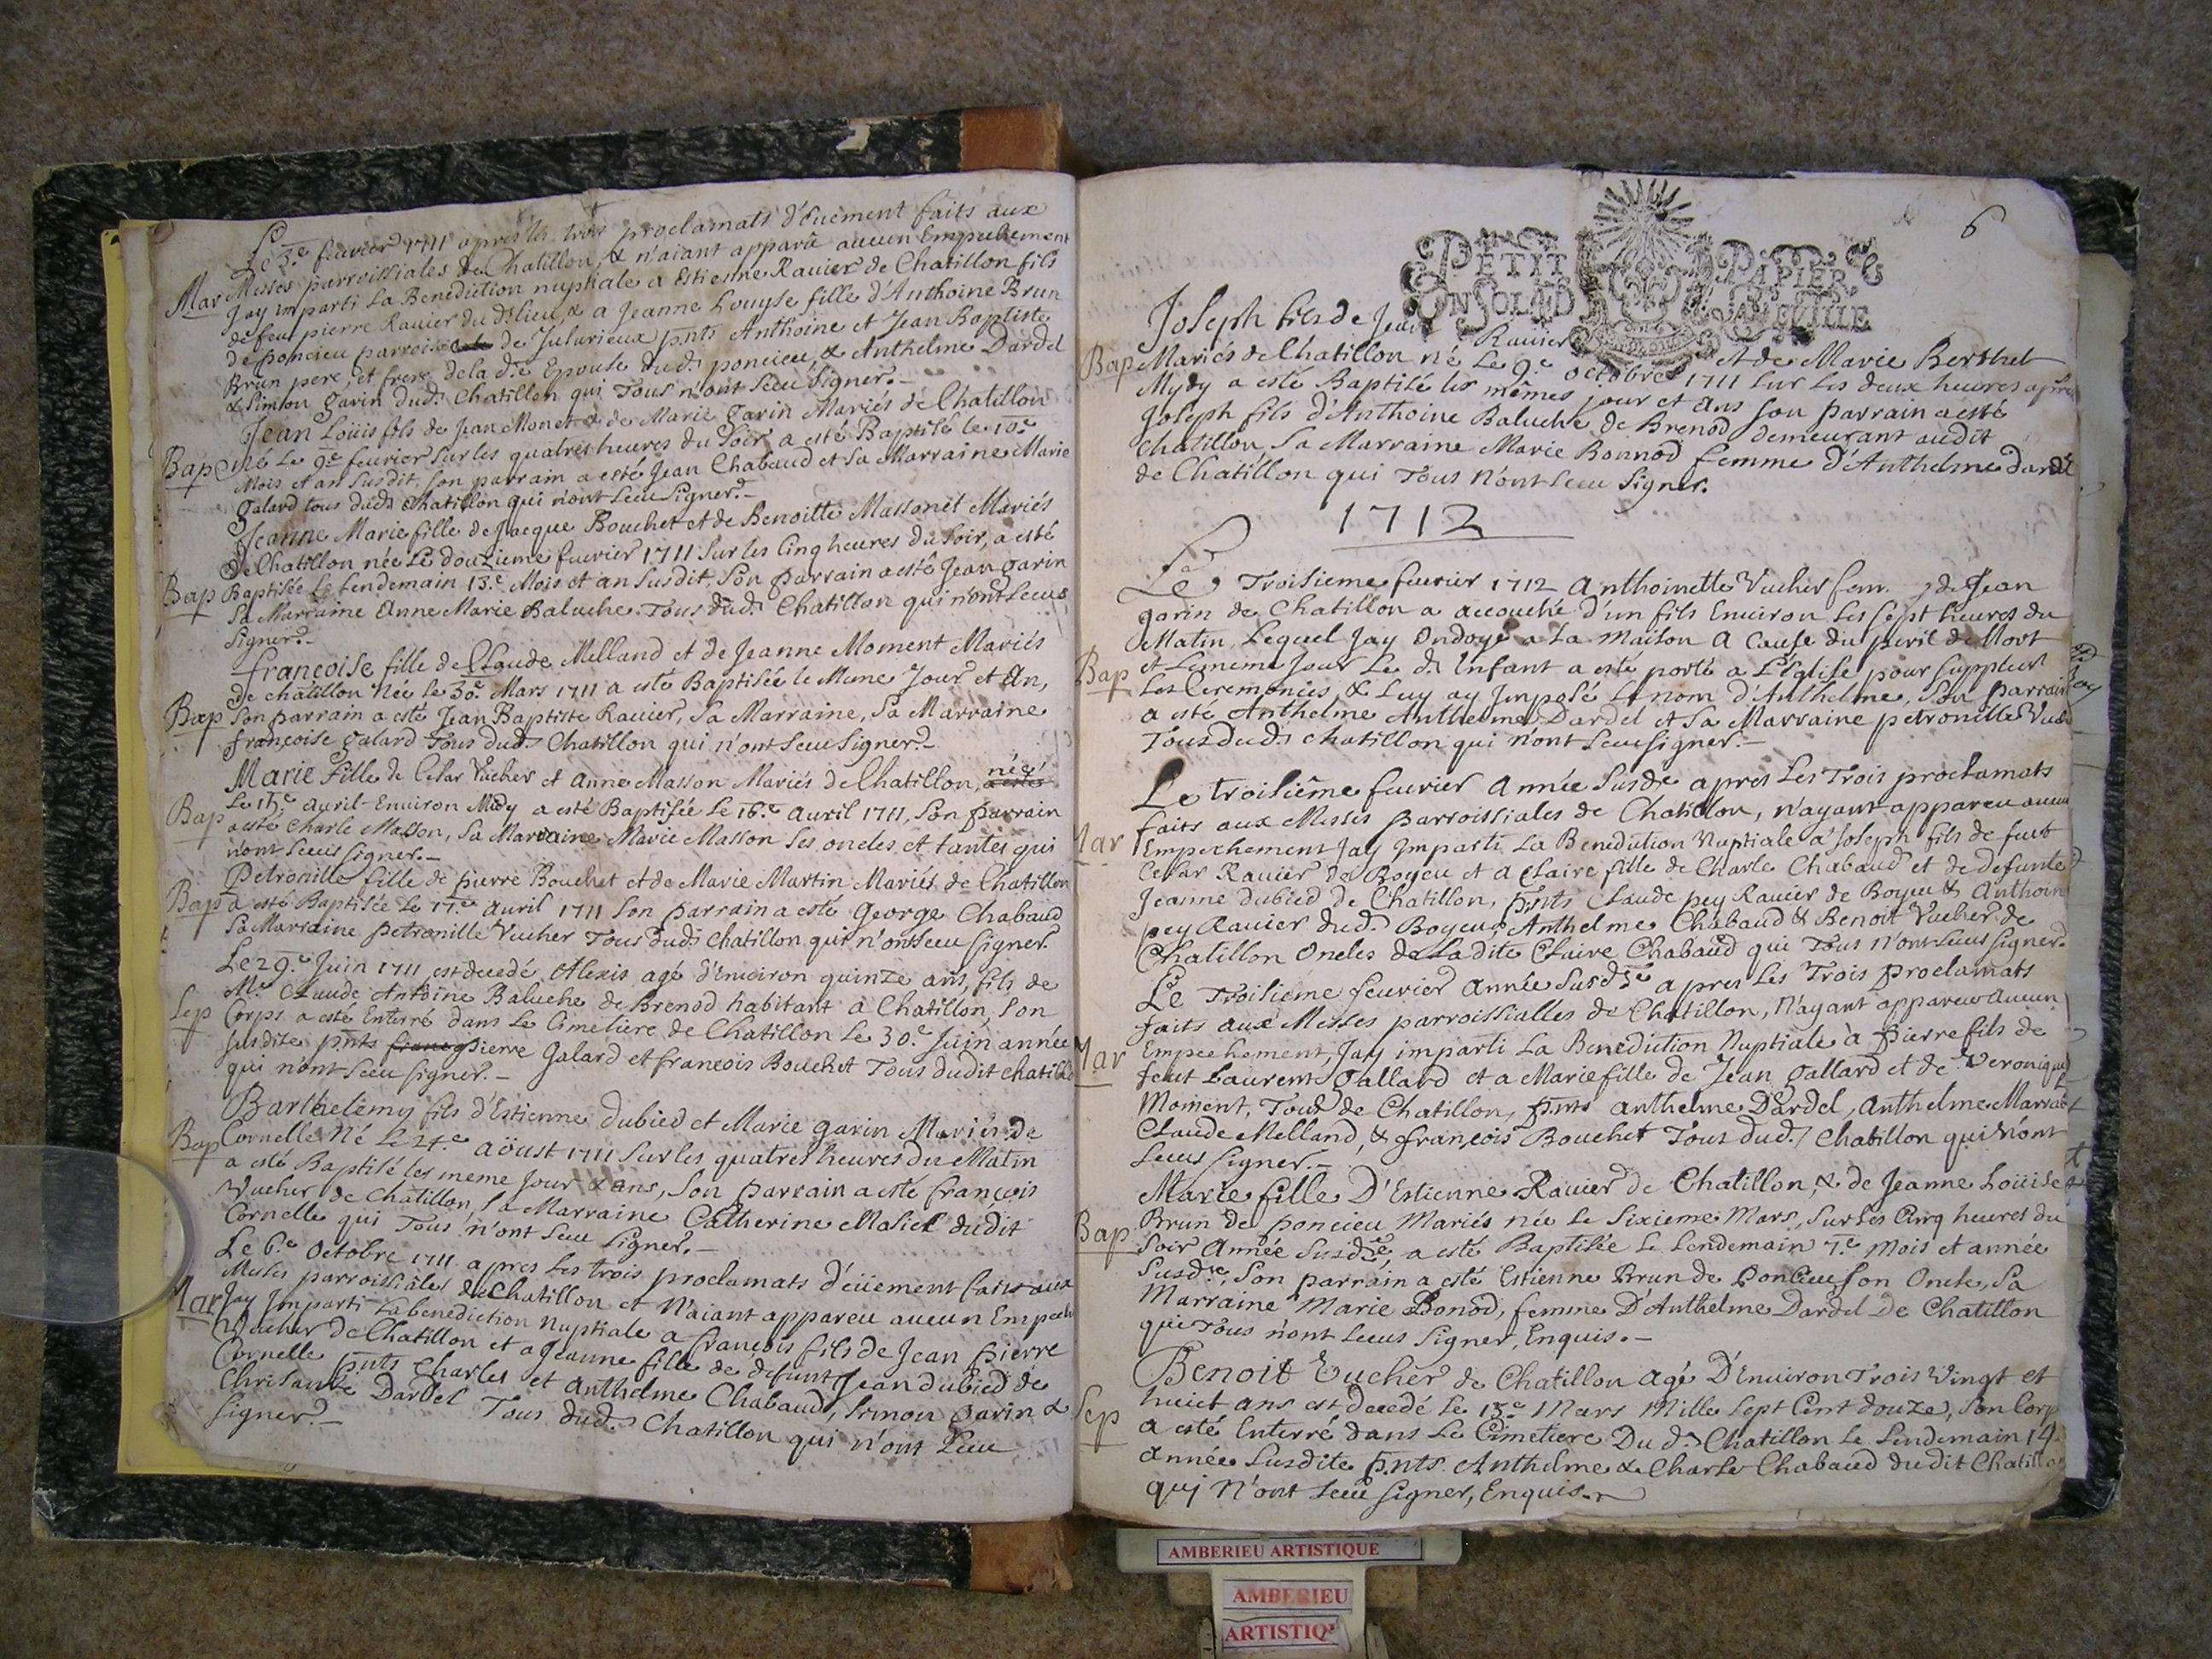 Le 3.e feurier 1711 apres les trois proclamats d'éuement faits aux
Mar Messes parroissiales de Chatillon, & n'aiant apparû aucun Empechement
Jay imparti La Benediction nuptiale a Estienne Rauier de Chatillon fils
de feu pierre Rauier du d. lieu, & a Jeanne Louyse fille d'Anthoine Brun
de poncieu parroisse de Julurieux pnts Anthoine et Jean Baptiste
Brun pere, et frere de la d.e Epouse du d. poncieu, & Anthelme Dardel
& Simon garin dud. Chatillon qui Tous n'ont sceu signer.
Jean Loüis fils de Jean Monet & de Marie garin Mariés de Chatillon
Bap né Le 9.e feurier sur les quatres heures du soir a esté Baptisé le 10.e
Mois et an susdit, son parrain a esté Jean Chabaud et sa Marraine Marie
galard tous dud. Chatillon qui n'ont sceu signer.
Jeanne Marie fille de Jacque Bouchet et de Benoitte Massonet Mariés
de Chatillon née Le douzieme feurier 1711 sur les Cinq heures du soir, a esté
Bap Baptisée Le Lendemain 13.e Mois et an susdit, son parrain a esté Jean garin
sa Marraine Anne Marie Baluche Tous dud. Chatillon qui n'ont sceus
signer.
françoise fille de Claude Melland et de Jeanne Moment Mariés
de chatillon née le 30.e Mars 1711 a esté Baptisée le Meme Jour et An,
Bap son parrain a esté Jean Baptiste Rauier, sa Marraine, sa Marraine
françoise galard Tous dud. Chatillon qui n'ont sceu signer.
Marie fille de Cesar Vucher et Anne Masson Mariés de Chatillon, née
Le 15.e auril Enuiron Midy a esté Baptisée Le 16.e auril 1711, son parrain
Bap a esté Charle Masson, sa Marraine Marie Masson ses oncles et tantes qui
n'ont sceus signer.
Petronille fille de pierre Bouchet et de Marie Martin Mariés de Chatillon
Bap a esté Baptisée Le 17.e auril 1711 son parrain a esté George Chabaud
sa Marraine petronille Vucher Tous dud. Chatillon qui n'ont sceu signer.
Le 29.e Juin 1711 est decedé Alexis agé d'Enuiron quinze ans, fils de
M.e Claude Antoine Baluche de Brenod habitant a Chatillon, son
Sep Corps a esté Enterré dans Le Cimetiere de Chatillon Le 30.e Juin année
susdite pnts pierre galard et françois Bouchet Tous dudit chatillo
qui n'ont sceu signer.
Barthelemy fils d'Estienne dubied et Marie garin Mariés de
Bap Cornelle né Le 24.e aöust 1711 sur les quatres heures du Matin
a esté Baptisé les meme Jour & ans, son parrain a esté françois
Vucher de Chatillon, sa Marraine Catherine dudit
Cornelle qui Tous n'ont sceu signer.
Le 6.e Octobre 1711 apres Les trois proclamats d'éüement faits aux
Messes parroissiales de Chatillon et N'aiant appareu aucun Empech
Mar Jay Imparti La benediction Nuptiale a françois fils de Jean pierre
Vucher de Chatillon et a Jeanne fille de defunt Jean dubied de
Cornelle pnts Charles et Anthelme Chabaud, Simon garin &
Chrisante Dardel Tous dud. Chatillon qui n'ont sceu
signer.
6
PETIT PAPIER
UN SOL LE D
Joseph fils de Jean Rauier et de Marie Berthet
Bap Mariés de Chatillon né Le 9.e octobre 1711 sur les deux heures apres
Mydy a esté Baptisé les mêmes jour et Ans son parrain a esté
Joseph fils d'Anthoine Baluche de Brenod demeurant audit
Chatillon, sa Marraine Marie Bonnod femme d'Anthelme dardel
de Chatillon qui Tous n'ont sceu signer.
1712
Le Troisieme feurier 1712 Anthoinette Vucher fem. de Jean
garin de Chatillon a acouché d'un fils Enuiron les sept heures du
Matin, Lequel Jay Ondoyé a La Maison a Cause du peril de Mort
Bap et Lememe jour Le d. Enfant a esté porté a L'Eglise pour suppleer
Les Ceremonies, & Luy ay Jmposé Le nom d'Anthelme, son parrain
a esté Anthelme Anthelme Dardel et sa Marraine petronille Vuch
Tous dud. chatillon qui n'ont sceu signer.
Le troisième feurier Année susde apres Les Trois proclamats
faits aux Messes parroissiales de Chatillon, n'ayant appareu aucun
Mar Empechement Jay Jmparti La Benediction Nuptiale a Joseph fils de feut
Cesar Rauier de Boyeu et a Claire fille de Charle Chabaud et de defunte
Jeanne dubied de Chatillon, pnts Claude pey Rauier de Boyeu & Anthoin
pey Rauier dud. Boyeu, Anthelme Chabaud & Benoit Vucher de
Chatillon oncles de Ladite Claire Chabaud qui Tous n'ont sceus signer.
Le Troisieme feurier année susdte apres Les Trois proclamats
faits aux Messes parroissialles de Chatillon, N'ayant appareu aucun
Mar Empechement, Jay imparti La Benediction Nuptiale à Pierre fils de
feut Laurent Gallard et a Marie fille de Jean gallard et de Veronique
Moment, Tous de Chatillon, pnts Anthelme Dardel, Anthelme
Claude Melland, & françois Bouchet Tous dud. Chatillon qui n'ont
sceus signer.
Marie fille D'Estienne Rauier de Chatillon, & de Jeanne Loüise
Bap Brun de poncieu Mariés née Le sixieme Mars, sur Les Cinq heures du
soir Année susdte, a esté Baptisée Le Lendemain 7.e Mois et année
susdte, son parrain a esté Estienne Brun de Poncieu son Oncle, sa
Marraine Marie Bonod, femme D'Anthelme Dardel de Chatillon
qui Tous n'ont sceus signer, Enquis.
Benoit Vucher de Chatillon agé D'Enuiron Trois Vingt et
Sep huict ans est decedé Le 13.e Mars Mille sept Cent douze, son Corp
a esté Enterré dans Le Cimetiere Du d. Chatillon Le Lendemain 14
année susdite pnts Anthelme & Charle Chabaud dudit Chatillon
qui N'ont sceu signer, Enquis.
AMBERIEU ARTISTIQUE
AMBERIEU
ARTISTIQ